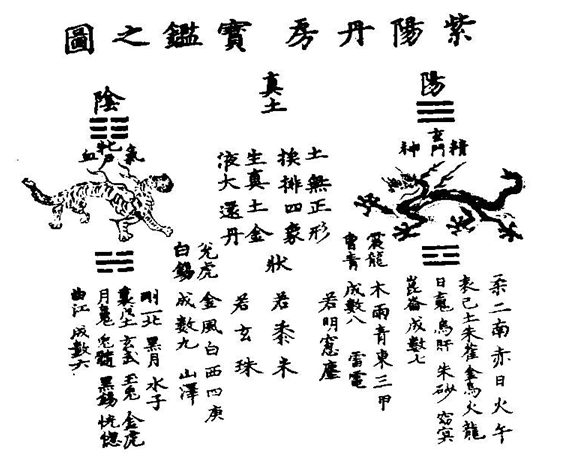 紫陽丹房寶鑑之圖
陽
精
玄門
神
柔二南赤日火午
表己土朱雀金烏火龍
日魂烏肝朱砂窈冥
崑崙成數七
震龍木雨青東三甲
曾青成數八雷電
真土
土無正形
挨排四象
生真土金
液大還丹
狀
若明窻塵
若黍米
若玄珠
陰
氣
牝
血
兌虎金風白西四庚
白錫成數九山澤
剛一北黑月水子
裏戊土玄武玉兔金虎
月兔髓黑錫恍惚
曲江成數六